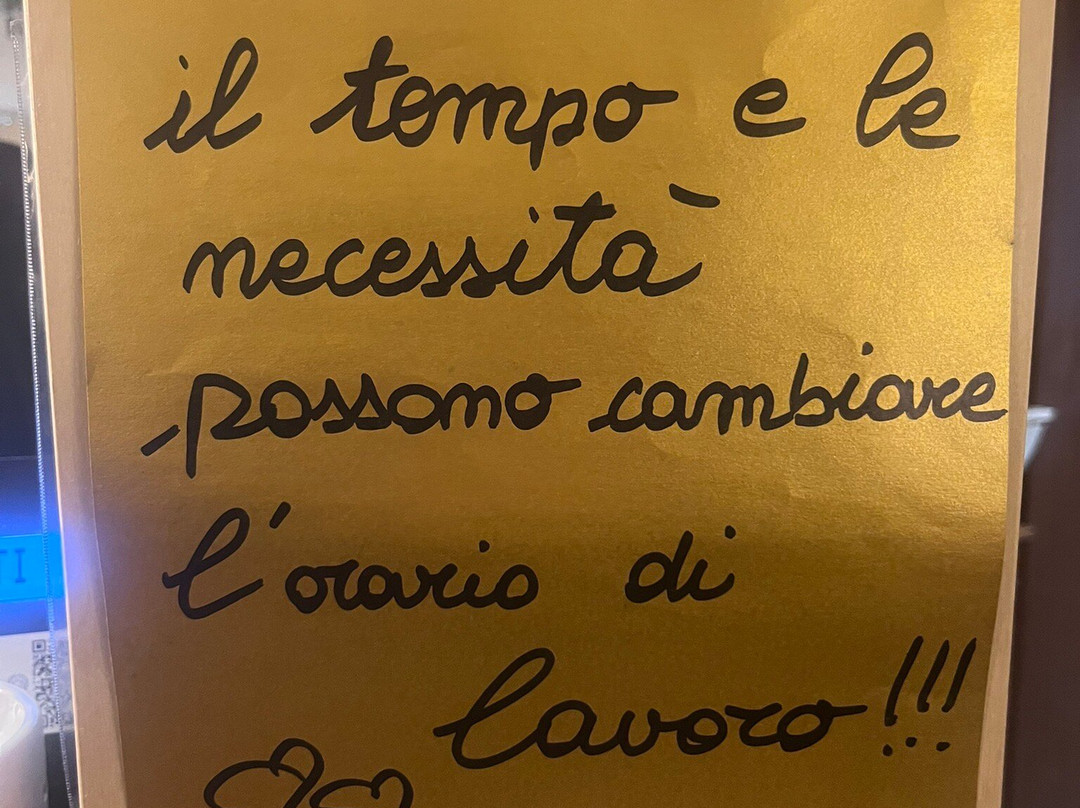 il tempo e le
necessità
possono cambiare
l'orario di
lavoro!!!
TI